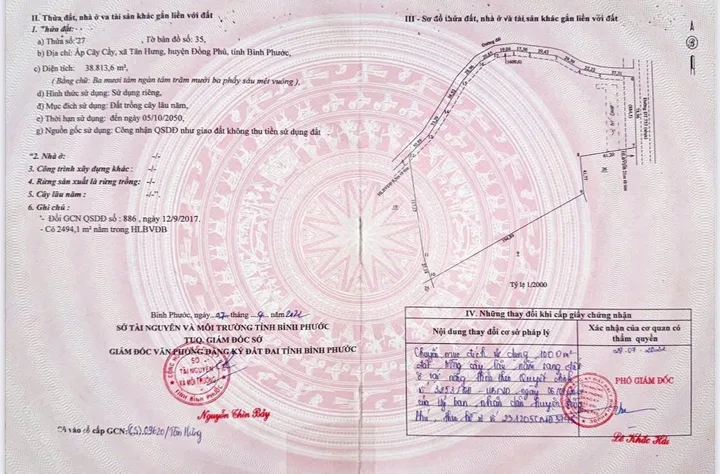 II. Thửa đất, nhà ở và tài sản khác gắn liền với đất
1. Thửa đất:
a) Thửa số: 27 , Tờ bản đồ số: 35,
b) Địa chỉ: Ấp Cây Cầy, xã Tân Hưng, huyện Đồng Phú, tỉnh Bình Phước,
c) Diện tích: 38.813,6 m²,
( Bằng chữ: Ba mươi tám ngàn tám trăm mười ba phẩy sáu mét vuông)
d) Hình thức sử dụng: Sử dụng riêng,
đ) Mục đích sử dụng: Đất trồng cây lâu năm,
e) Thời hạn sử dụng: đến ngày 05/10/2050,
g) Nguồn gốc sử dụng: Công nhận QSDĐ như giao đất không thu tiền sử dụng đất
"2. Nhà ở: -/-
3. Công trình xây dựng khác: -/-
4. Rừng sản xuất là rừng trồng: -/-
5. Cây lâu năm: -/-".
6. Ghi chú :
- Đổi GCN QSDĐ số : 886 , ngày 12/9/2017.
- Có 2494,1 m² nằm trong HLBVĐB
Bình Phước, ngày 07 tháng 4 năm 2022
SỞ TÀI NGUYÊN VÀ MÔI TRƯỜNG TỈNH BÌNH PHƯỚC
TUQ. GIÁM ĐỐC SỞ
GIÁM ĐỐC VĂN PHÒNG ĐĂNG KÝ ĐẤT ĐAI TỈNH BÌNH PHƯỚC
SỞ
TÀI NGUYÊN
VÀ MÔI TRƯỜNG
TỈNH BÌNH PHƯỚC
Nguyễn Thìn Bảy
Số vào sổ cấp GCN: (CS).09620/Tân Hưng
III - Sơ đồ thửa đất, nhà ở và tài sản khác gắn liền với đất
Đường đất
Tỷ lệ 1/2000
IV. Những thay đổi khi cấp giấy chứng nhận
Nội dung thay đổi cơ sở pháp lý
Xác nhận của cơ quan có
thẩm quyền
Chuyển mục đích sử dụng 1000 m²
đất trồng cây lâu năm sang đất
ở tại nông thôn theo Quyết định
của Uỷ ban nhân dân huyện Đồng
PHÓ GIÁM ĐỐC
Lê Khắc Hải